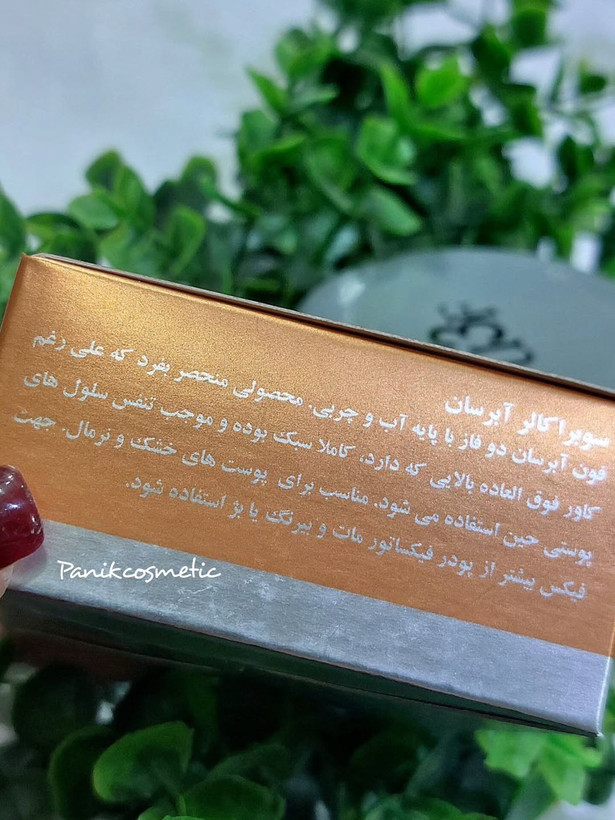 سوپرا کالر آبرسان
فون آبرسان دو فاز با پایه آب و چربی. محصولی منحصر بفرد که علی رغم
کاور فوق العاده بالایی که دارد، کاملا سبک بوده و موجب تنفس سلول های
پوستی حین استفاده می شود. مناسب برای پوست های خشک و نرمال. جهت
فیکس بیشتر از پودر فیکساتور مات و بیرنگ یا بژ استفاده شود.
Panikcosmetic